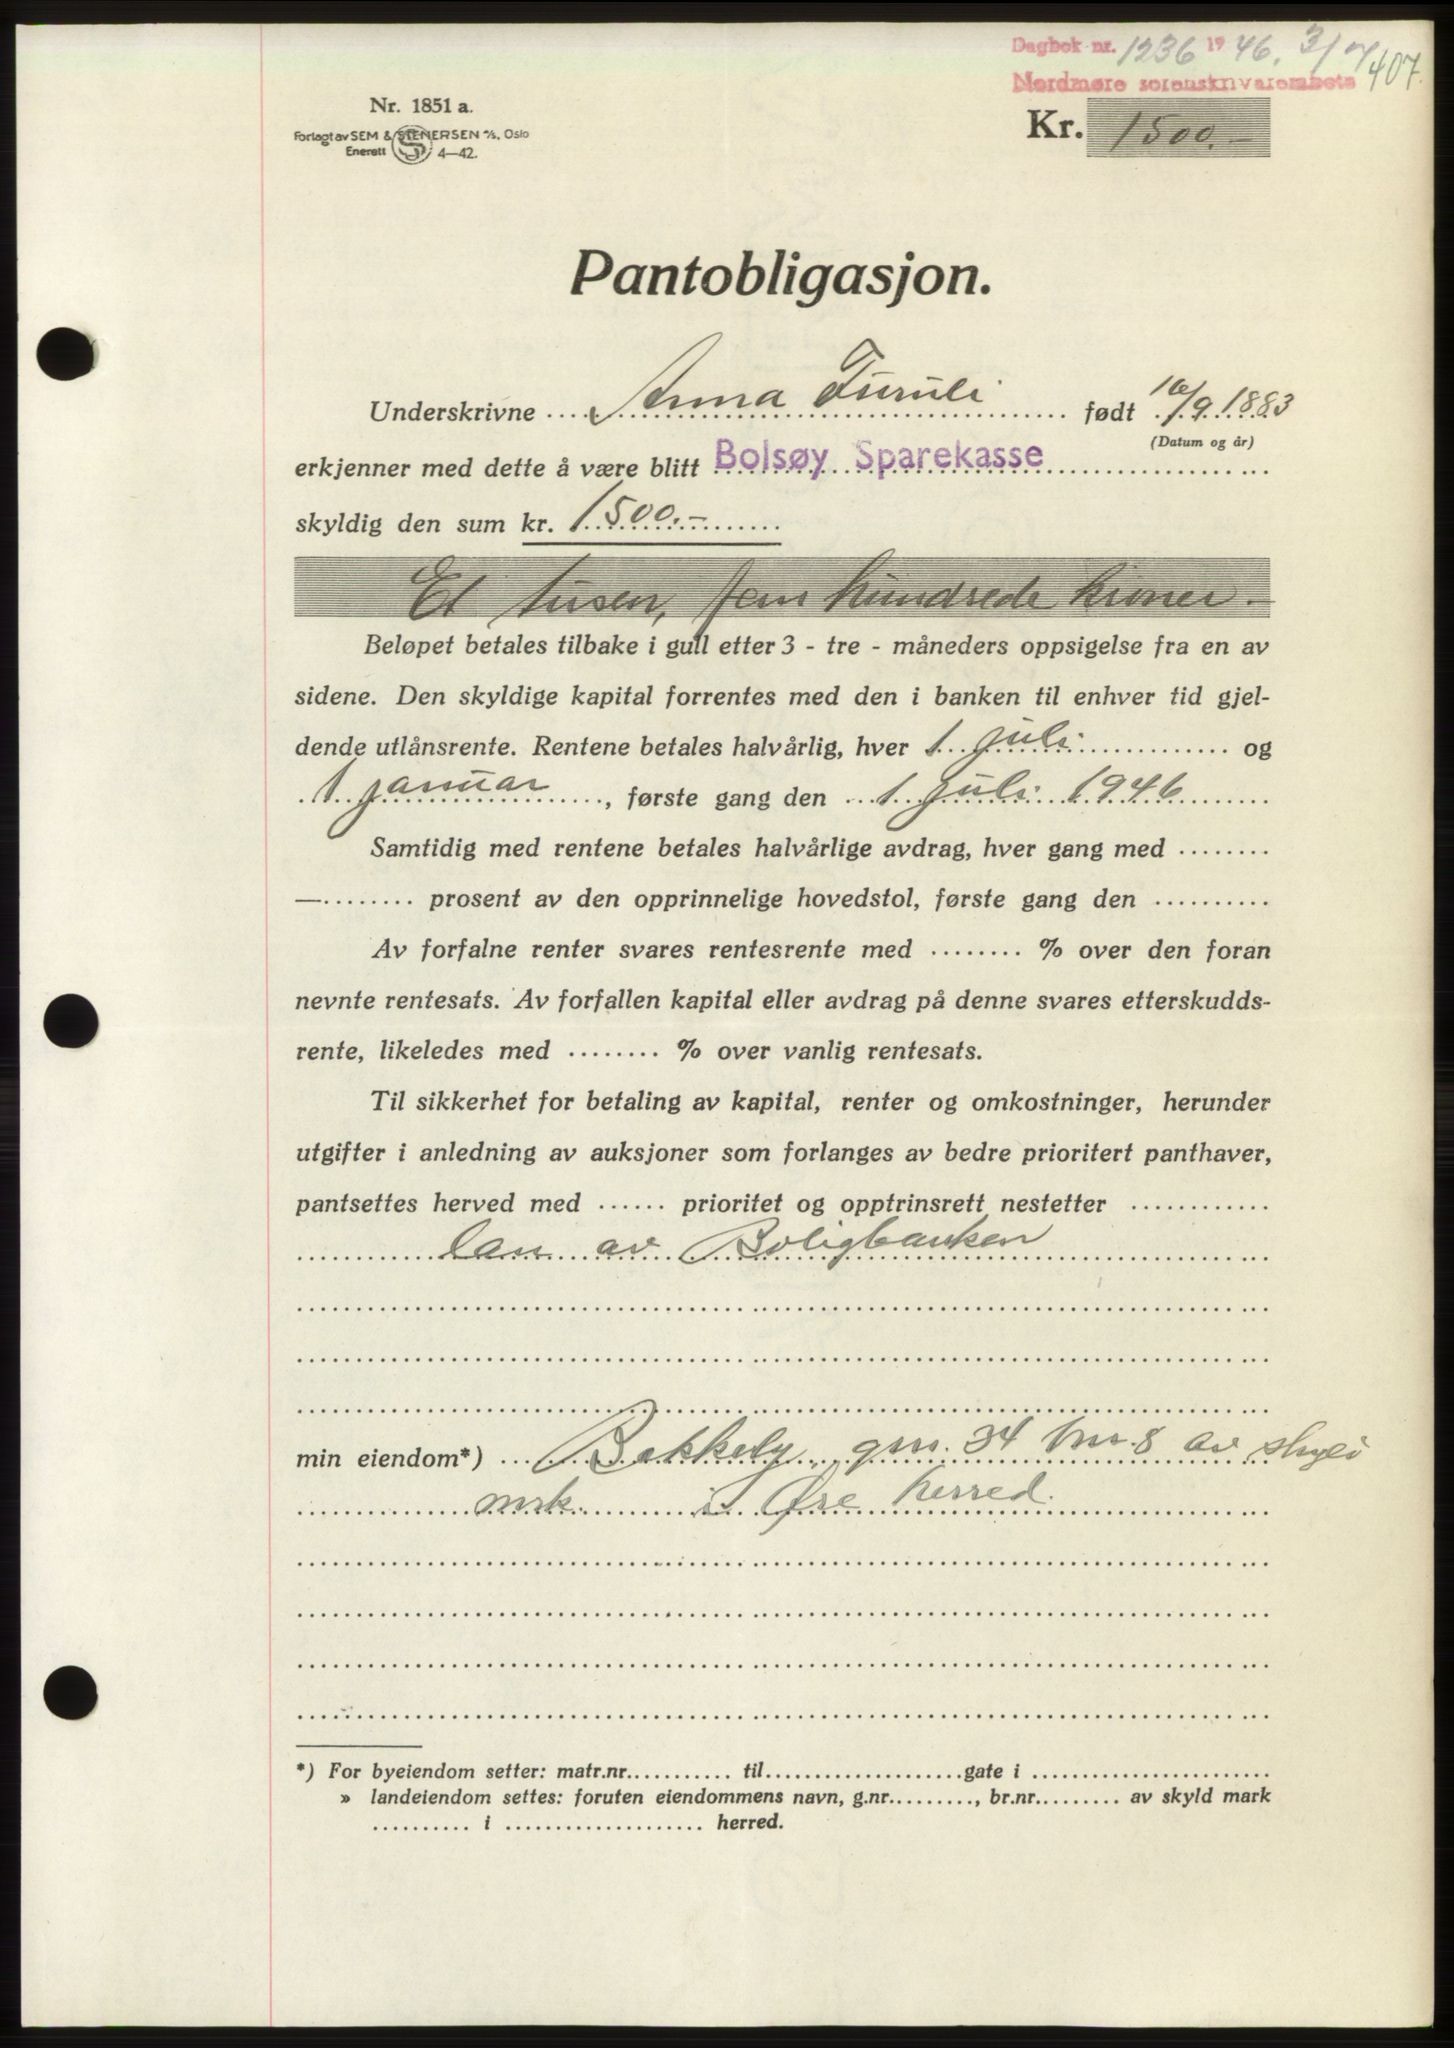 Dagbok nr. 1236 1946. 3/7 407.
Nordmøre sorenskriverembete
Nr. 1851 a.
Forlagt av SEM & STENERSEN A/S, Oslo
Enerett 4—42.
Kr. 1500.-
Pantobligasjon.
Underskrivne Anna Furuli født 16/9 1883
(Datum og år)
erkjenner med dette å være blitt Bolsøy Sparekasse
skyldig den sum kr. 1500.-
Et tusen, fem hundrede kroner.-
Beløpet betales tilbake i gull etter 3 - tre - måneders oppsigelse fra en av
sidene. Den skyldige kapital forrentes med den i banken til enhver tid gjel-
dende utlånsrente. Rentene betales halvårlig, hver 1 juli og
1 januar, første gang den 1 juli 1946
Samtidig med rentene betales halvårlige avdrag, hver gang med ........
—........ prosent av den opprinnelige hovedstol, første gang den ..........
Av forfalne renter svares rentesrente med ........ % over den foran
nevnte rentesats. Av forfallen kapital eller avdrag på denne svares etterskudds-
rente, likeledes med ........ % over vanlig rentesats.
Til sikkerhet for betaling av kapital, renter og omkostninger, herunder
utgifter i anledning av auksjoner som forlanges av bedre prioritert panthaver,
pantsettes herved med ...... prioritet og opptrinsrett nestetter ............
lån av Boligbanken
min eiendom*) Bakkely gnr. 34 bnr. 8 av skyld
mrk. i Øre herred.
*) For byeiendom setter: matr.nr........... til....................gate i .........................
» landeiendom settes: foruten eiendommens navn, g.nr........., br.nr......... av skyld mark
.......... i .................... herred.